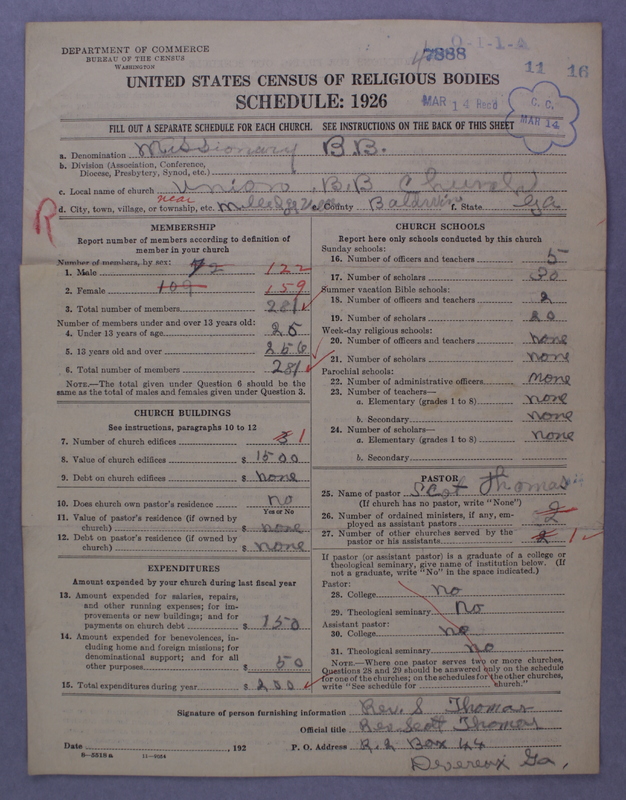 DEPARTMENT OF COMMERCE
BUREAU OF THE CENSUS
WASHINGTON
7888
11 16
UNITED STATES CENSUS OF RELIGIOUS BODIES
SCHEDULE: 1926
MAR 14 Rec'd
C. C.
MAR 14
FILL OUT A SEPARATE SCHEDULE FOR EACH CHURCH. SEE INSTRUCTIONS ON THE BACK OF THIS SHEET
a. Denomination Missionary B.B.
b. Division (Association, Conference, Diocese, Presbytery, Synod, etc.)
c. Local name of church Union B.B Church
near
d. City, town, village, or township, etc. e. County Baldwin f. State Ga
R
MEMBERSHIP
Report number of members according to definition of member in your church
Number of members, by sex:
1. Male 72 122
2. Female 109 159
3. Total number of members 281
Number of members under and over 13 years old:
4. Under 13 years of age 25
5. 13 years old and over 256
6. Total number of members 281
NOTE.—The total given under Question 6 should be the same as the total of males and females given under Question 3.
CHURCH BUILDINGS
See instructions, paragraphs 10 to 12
7. Number of church edifices 1
8. Value of church edifices $ 1500
9. Debt on church edifices $ none
10. Does church own pastor's residence no
Yes or No
11. Value of pastor's residence (if owned by church) $ none
12. Debt on pastor's residence (if owned by church) $ none
EXPENDITURES
Amount expended by your church during last fiscal year
13. Amount expended for salaries, repairs, and other running expenses; for improvements or new buildings; and for payments on church debt $ 150
14. Amount expended for benevolences, including home and foreign missions; for denominational support; and for all other purposes $ 50
15. Total expenditures during year $ 200
CHURCH SCHOOLS
Report here only schools conducted by this church
Sunday schools:
16. Number of officers and teachers 5
17. Number of scholars 30
Summer vacation Bible schools:
18. Number of officers and teachers 2
19. Number of scholars 20
Week-day religious schools:
20. Number of officers and teachers none
21. Number of scholars none
Parochial schools:
22. Number of administrative officers none
23. Number of teachers—
a. Elementary (grades 1 to 8) none
b. Secondary none
24. Number of scholars—
a. Elementary (grades 1 to 8) none
b. Secondary
PASTOR
25. Name of pastor Scot Thomas
(If church has no pastor, write "None")
26. Number of ordained ministers, if any, employed as assistant pastors 2
27. Number of other churches served by the pastor or his assistants 2 1
If pastor (or assistant pastor) is a graduate of a college or theological seminary, give name of institution below. (If not a graduate, write "No" in the space indicated.)
Pastor:
28. College no
29. Theological seminary No
Assistant pastor:
30. College no
31. Theological seminary no
NOTE.—Where one pastor serves two or more churches, Questions 28 and 29 should be answered only on the schedule for one of the churches; on the schedules for the other churches, write "See schedule for church."
Signature of person furnishing information Rev. S Thomas
Official title Rev. Scott Thomas
Date , 192 P. O. Address R.2 Box 44
8—5518a 11—9524
Devereux Ga.